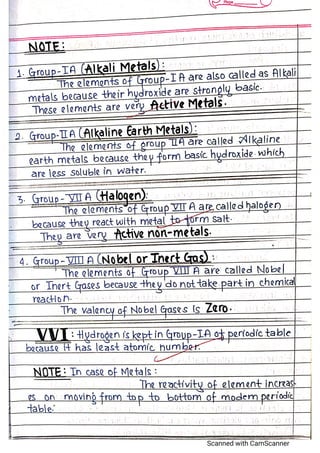 NOTE:
1. Group-IA (Alkali Metals):
The elements of Group-IA are also called as Alkali
metals because their hydroxide are strongly basic.
These elements are very Active Metals.
2. Group-IIA (Alkaline Earth Metals):
The elements of group IIA are called Alkaline
earth metals because they form basic hydroxide which
are less soluble in water.
3. Group-VIIA (Halogen):
The elements of Group VII A are called halogen
because they react with metal to form salt.
They are very Active non-metals.
4. Group-VIIIA (Nobel or Inert Gas):
The elements of Group VIII A are called Nobel
or Inert Gases because they do not take part in chemical
reaction.
The valency of Nobel Gases is Zero.
VVI: Hydrogen is kept in Group-IA of periodic table
because it has least atomic number.
NOTE: In case of Metals:
The reactivity of element increas-
es on moving from top to bottom of modern periodic
table.
Scanned with CamScanner